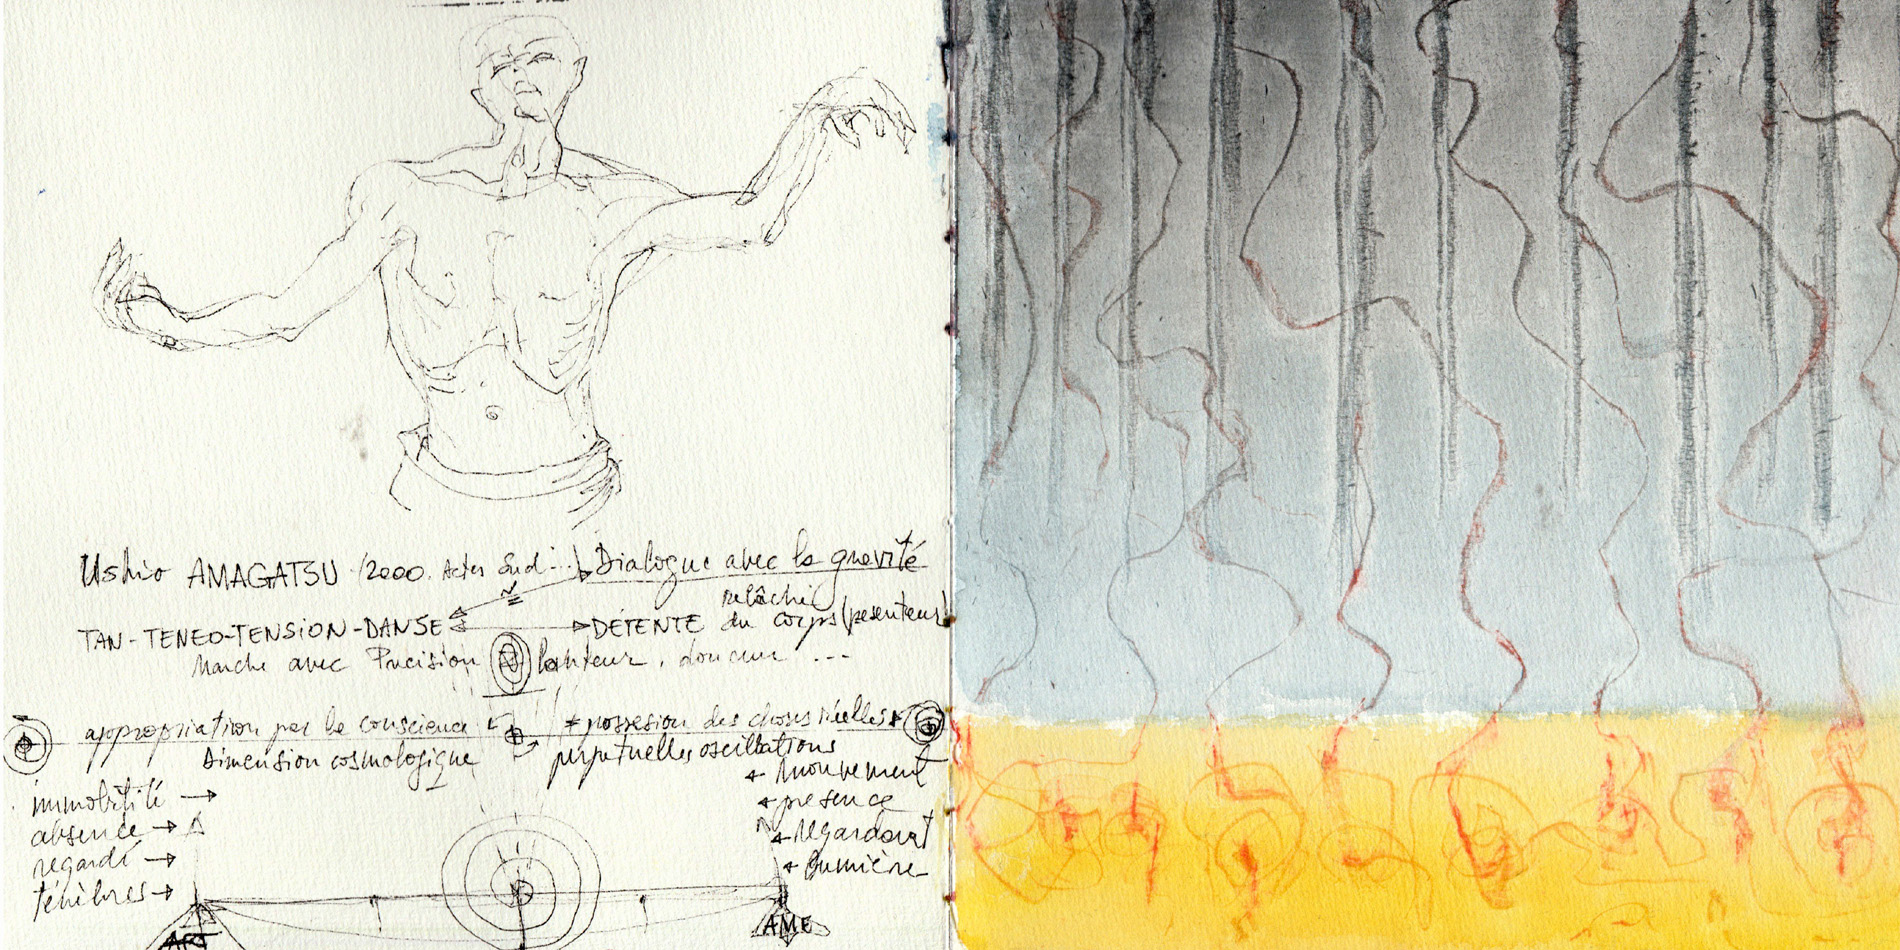 Ushio AMAGATSU /2000. Actes Sud... Dialogue avec la gravité
relâche
TAN-TENEO-TENSION-DANSE DÉTENTE du corps (pesanteur)
Marche avec Précision lenteur, douceur ...
appropriation par la conscience ≠ possession des choses réelles
Dimension cosmologique perpétuelles oscillations
immobilité → ← mouvement
absence → ← présence
regardé → ← regardant
ténèbres → ← lumière
ART AME